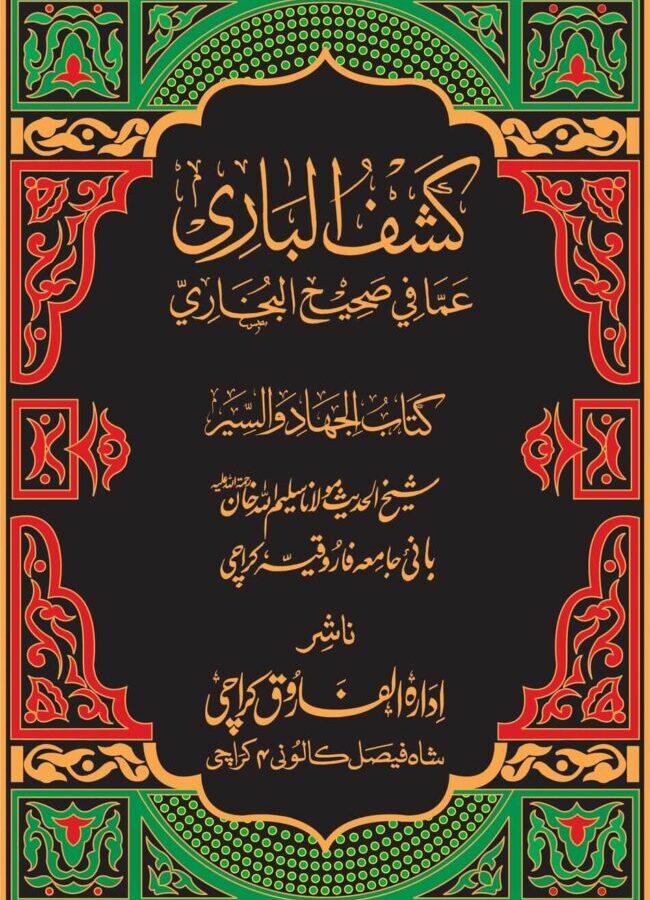 كَشَفُ الْبَارِي
عَمَّا فِي صَحِيْحِ الْبُخَارِيِّ
كِتَابُ الْجِهَادِ وَالسِّيَرِ
شیخ الحدیث مولانا سلیم اللہ خان رحمۃ اللہ علیہ
بانیٔ جامعہ فاروقیہ کراچی
ناشر
ادارۃ الفاروق کراچی
شاہ فیصل کالونی ۴ کراچی